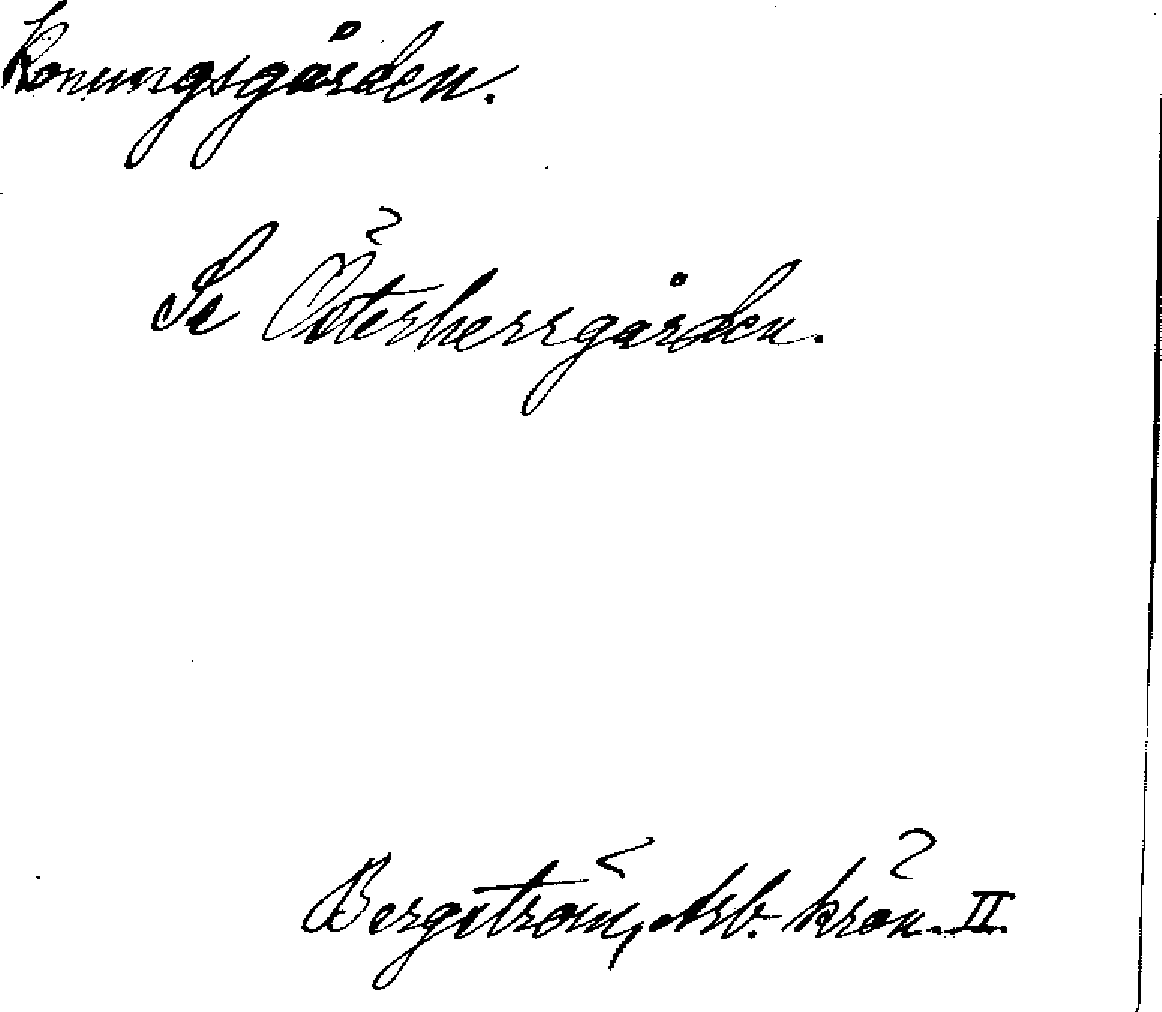 Konungsgården.
Se Österherrgården.
Bergström, Arb. krön. II.